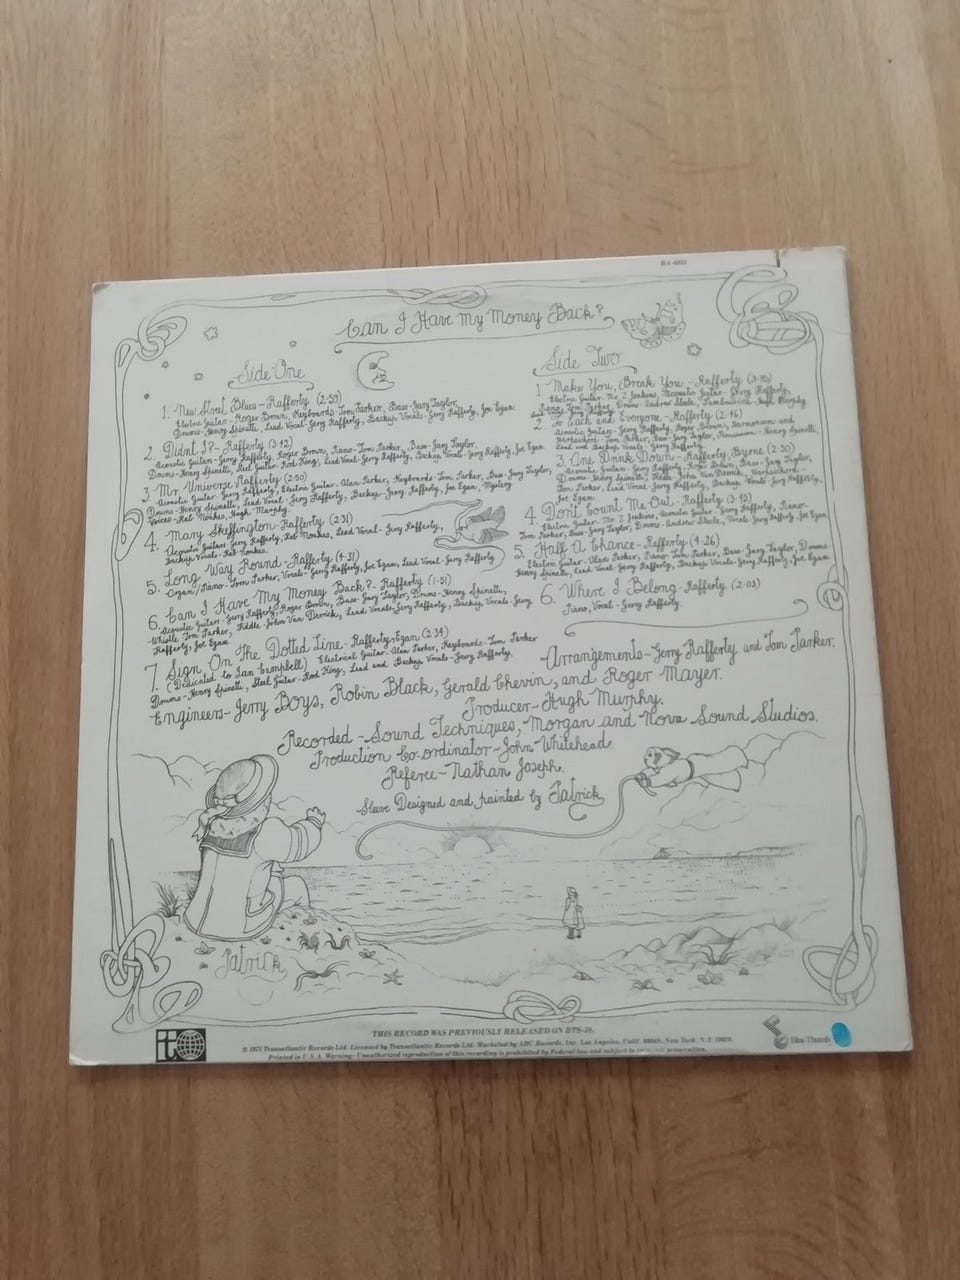 BA-6031
Can I Have My Money Back?
Side One
1. New Street Blues-Rafferty (2:59)
Electric Guitar-Roger Brown, Keyboards-Tom Parker, Bass-Gary Taylor,
Drums-Henry Spinetti, Lead Vocal-Gerry Rafferty, Backup Vocals-Gerry Rafferty, Joe Egan.
2. Didn't I?-Rafferty (3:42)
Acoustic Guitars-Gerry Rafferty, Roger Brown, Piano-Tom Parker, Bass-Gary Taylor,
Drums-Henry Spinetti, Steel Guitar-Rod King, Lead Vocal-Gerry Rafferty, Backup Vocals-Gerry Rafferty, Joe Egan
3. Mr. Universe-Rafferty (2:50)
Acoustic Guitar-Gerry Rafferty, Electric Guitar-Alan Parker, Keyboards-Tom Parker, Bass-Gary Taylor,
Drums-Henry Spinetti, Lead Vocal-Gerry Rafferty, Backup-Gerry Rafferty, Joe Egan, Mystery
Voices-Rab Noakes, Hugh Murphy.
4. Mary Skeffington-Rafferty (2:31)
Acoustic Guitars-Gerry Rafferty, Rab Noakes, Lead Vocal-Gerry Rafferty,
Backup Vocals-Rab Noakes.
5. Long Way Round-Rafferty (4:31)
Organ/Piano-Tom Parker, Vocals-Gerry Rafferty, Joe Egan, Lead Vocal-Gerry Rafferty
6. Can I Have My Money Back?-Rafferty (1:51)
Acoustic Guitars-Gerry Rafferty, Roger Brown, Bass-Gary Taylor, Drums-Henry Spinetti,
Whistle Tom Parker, Fiddle-John Van Derrick, Lead Vocals-Gerry Rafferty, Backup Vocals-Gerry
Rafferty, Joe Egan
7. Sign On The Dotted Line-Rafferty, Egan (2:34)
(Dedicated to Ian Campbell) Electrical Guitar-Alan Parker, Keyboards-Tom Parker
Drums-Henry Spinetti, Steel Guitar-Rod King, Lead and Backup Vocals-Gerry Rafferty.
Side Two
1 Make You, Break You-Rafferty
Electric Guitar-Mr. Z Jenkins, Acoustic Guitar-Gerry Rafferty,
Tom Parker, Drums-Andrew Steele, Tambourine-Hugh Murphy
2. To Each and Everyone-Rafferty (2:46)
Acoustic Guitars-Gerry Rafferty, Roger Brown, Harmonium and
Harpsichord-Tom Parker, Bass-Gary Taylor, Percussion-Henry Spinetti,
Lead and Backup Vocals-Gerry Rafferty.
3 One Drink Down-Rafferty, Byrne (2:30)
Acoustic Guitars-Gerry Rafferty, Roger Brown, Bass-Gary Taylor,
Drums-Henry Spinetti, Fiddle-John Van Derrick, Harpsichord-
Tom Parker, Lead Vocal-Gerry Rafferty, Backup Vocals-Gerry Rafferty,
Joe Egan.
4. Don't Count Me Out-Rafferty (3:45)
Electric Guitar-Mr. Z Jenkins, Acoustic Guitar-Gerry Rafferty, Piano-
Tom Parker, Bass-Gary Taylor, Drums-Andrew Steele, Vocals-Gerry Rafferty, Joe Egan.
5. Half A Chance-Rafferty (4:26)
Electric Guitar-Alan Parker, Piano-Tom Parker, Bass-Gary Taylor, Drums-
Henry Spinetti, Lead Vocal-Gerry Rafferty, Backup Vocals-Gerry Rafferty, Joe Egan.
6. Where I Belong-Rafferty (2:03)
Piano, Vocal-Gerry Rafferty.
Arrangements-Gerry Rafferty and Tom Parker.
Engineers-Jerry Boys, Robin Black, Gerald Chevin, and Roger Mayer.
Producer-Hugh Murphy.
Recorded-Sound Techniques, Morgan and Nova Sound Studios.
Production Co-ordinator-John Whitehead.
Referee-Nathan Joseph.
Sleeve Designed and painted by Patrick
Patrick
THIS RECORD WAS PREVIOUSLY RELEASED ON BTS-58.
© 1971 Transatlantic Records Ltd. Licensed by Transatlantic Records Ltd. Marketed by ABC Records, Inc. Los Angeles, Calif. 90048, New York, N.Y. 10019.
Printed in U.S.A. Warning: Unauthorized reproduction of this recording is prohibited by Federal law and subject to criminal prosecution.
Blue Thumb